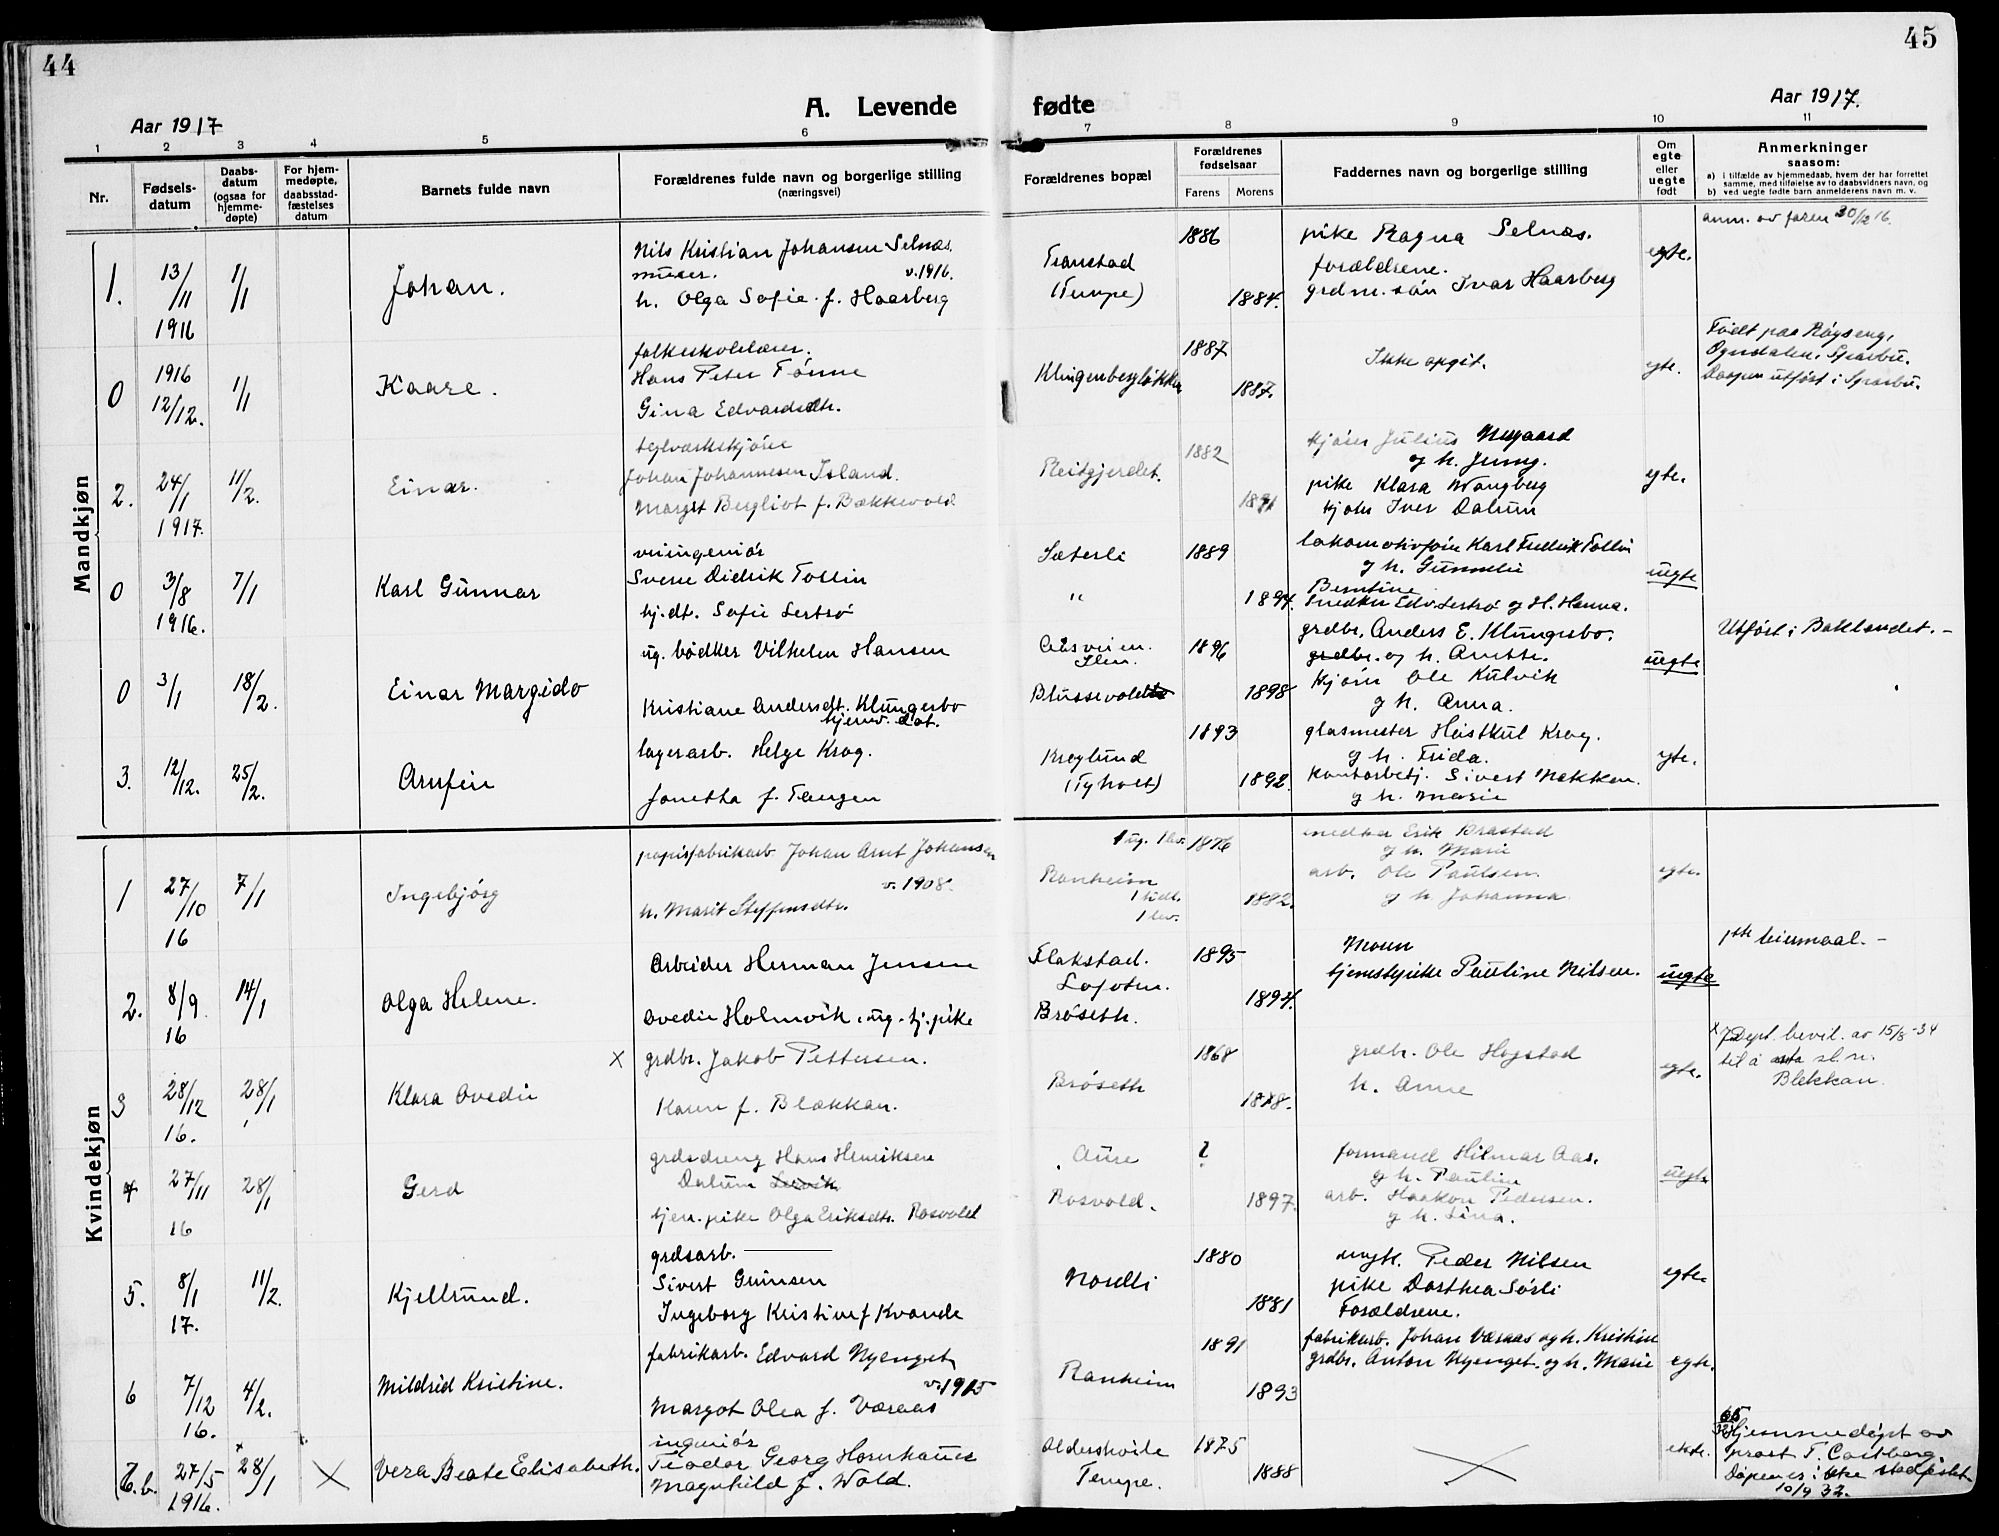 44
45
A. Levende fødte
Aar 1917
Aar 1917.
1 2 3 4 5 6 7 8 9 10 11
Nr.
Fødsels-
datum
Daabs-
datum
(ogsaa for
hjemme-
døpte)
For hjem-
medøpte,
daabsstad-
fæstelses
datum
Barnets fulde navn
Forældrenes fulde navn og borgerlige stilling
(næringsvei)
Forældrenes bopæl
Forældrenes
fødselsaar
Farens Morens
Faddernes navn og borgerlige stilling
Om
egte
eller
uegte
født
Anmerkninger
saasom:
a) i tilfælde av hjemmedaab, hvem der har forrettet
samme, med tilføielse av to daabsvidners navn, og
b) ved uegte fødte barn anmelderens navn m. v.
Mandkjøn
1. 13/11 1916 1/1 Johan.
Nils Kristian Johansen Selnæs.
murer. v. 1916.
h. Olga Sofie f. Haarberg
Transtad
(Tempe)
1886 1884.
pike Ragna Selnæs.
forældrene.
grdm. søn Ivar Haarberg
egte.
anm. av faren 30/12 16.
0 1916 12/12. 1/1 Kaare.
folkeskolelærer.
Hans Peter Tønne
Gina Edvardsdtr.
Klingenbergløkken
1887 1887.
Ikke opgit.
egte.
Født paa Røyseng,
Ogndalen, Sparbu.
Daapen utført i Sparbu.
2. 24/1 1917. 11/2. Einar.
teglverkskjører
Johan Johannesen Island.
Margit Bergliot f. Bækkevold.
Reitgjerdet.
1882 1891
kjører Julius Nygaard
og h. Jenny.
pike Klara Wangberg
kjører Iver Dalum
egte.
0 3/8 1916. 7/1 Karl Gunnar
Sverre Didrik Tollin
hj.dt. Sofie Sertrø
Sæterli
"
1889 1894.
lokomotivfører Karl Fredrik Tollin
og h. Gunnelie
Berntine
Snedker Edv. Sertrø og H. Hanna.
uegte
0 3/1 18/2. Einar Margido
ug. bødker Vilhelm Hansen
Kristiane Andersdt. Klungerbo
hjemv. dat.
Ilen.
Blussevold
1896 1898
grdbr. Anders E. Klungerbo.
grdbr. og h. Anette.
Kjører Ole Kulvik
og h. Anna.
uegte
Utført i Baklandet. –
3. 12/12. 25/2. Arnfein
lagerarb. Helge Krog.
Jonetta f. Tangen
Kroglund
(Tyholt)
1893 1892.
glasmester Høstkul Krog.
og h. Frida.
Kontorbetj. Sivert Nakken.
og h. Marie
egte.
Kvindekjøn
1 27/10 16 7/1 Ingebjørg
papirfabrikarb. Johan Arnt Johansen
v. 1908.
h. Marit Steffensdtr.
1 ug. 1 lev.
Ranheim
1 tidl.
1 lev.
1876 1882.
snedker Erik Brastad
og h. Marie
arb. Ole Paulsen.
og h. Johanna
egte.
2. 8/9 16 14/1 Olga Helene.
Arbeider Herman Jensen
Ovedie Holmvik. ug. tj. pike
Flakstad.
Lofoten.
Brøseth.
1895 1894.
Moren
tjenestepike Pauline Nilsen.
uegte
1ste leiermaal. –
3 28/12 16. 28/1 Klara Ovedie
X grdbr. Jakob Pettersen.
Karen f. Blækkan.
Brøseth
1868 1878.
grdbr. Ole Hogstad
h. Anne
egte.
x) Dept. bevil. av 15/8-34
til å anta sl. n.
Blekkan.
4 27/11 16 28/1 Gerd
grdsdreng Hans Henriksen
Dalum Lervik
tjen. pike Olga Eriksdtr. Rosvold
Aure
Rosvold.
? 1897.
formand Hilmar Aas.
og h. Pauline
arb. Haakon Pedersen.
og h. Lina.
uegte
5. 8/1 17. 11/2. Kjellrund.
grdsarb.
Sivert Guinsen
Ingeborg Kristine f Kvande
Nordli
1880 1881
Peder Nilsen
pike Dorthea Sørli
Forældrene.
egte.
6 7/12 16. 4/2. Mildrid Kristine.
fabrikarb. Edvard Nyenget
v. 1915
Margot Olea f. Væraas
Ranheim
1891 1893
fabrikarb. Johan Væraas og h. Kristine
grdbr. Anton Nyenget og h. Marie
egte.
6.b. 27/5 1916. 28/1 X Vera Beate Elisabeth.
ingeniør
Teodor Georg Hornhaues
Magnhild f. Wold.
Tempe.
1875 1888
X
ekte.
Hjemmedøpt av
prost T. Castberg
Dåpen er ikke stadfestet
10/9 32.